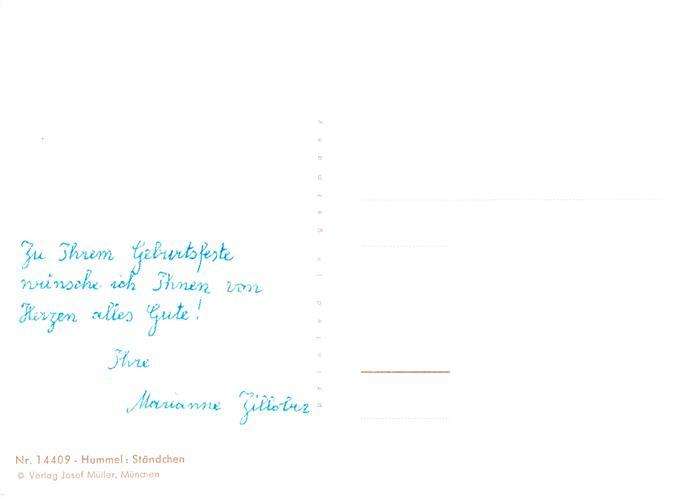 Zu Ihrem Geburtsfeste
wünsche ich Ihnen von
Herzen alles Gute!
Ihre
Marianne
Nr. 14409 - Hummel: Ständchen
© Verlag Josef Müller, München